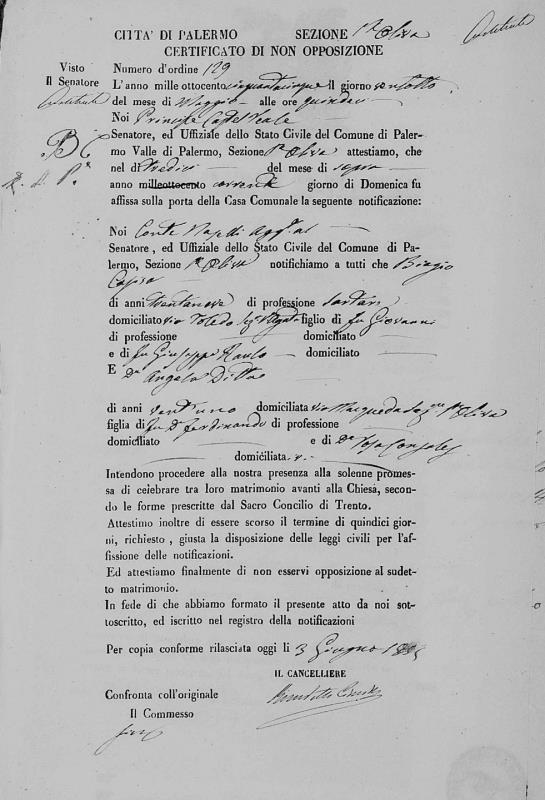 CITTA' DI PALERMO SEZIONE Pª Oliva
CERTIFICATO DI NON OPPOSIZIONE
Visto
Il Senatore
Numero d'ordine 129
L'anno mille ottocento cinquantacinque il giorno ventotto
del mese di Maggio alle ore quindeci
Noi Principe
Senatore, ed Uffiziale dello Stato Civile del Comune di Paler-
mo Valle di Palermo, Sezione Pª Oliva attestiamo, che
nel dì tredici del mese di sopra
anno milleottocento corrente giorno di Domenica fu
affissa sulla porta della Casa Comunale la seguente notificazione:
Noi Conte
Senatore, ed Uffiziale dello Stato Civile del Comune di Pa-
lermo, Sezione Pª Oliva notifichiamo a tutti che Biagio
di anni trentanove di professione
domiciliato via Toledo figlio di fu Giovanni
di professione domiciliato
e di fu Giuseppa domiciliato
E Dª Angela
di anni vent'uno domiciliata via Macqueda Sezne Pª Oliva
figlia di fu D. Ferdinando di professione
domiciliato e di Dª Rosa Consales
domiciliata
Intendono procedere alla nostra presenza alla solenne promes-
sa di celebrare tra loro matrimonio avanti alla Chiesa, secon-
do le forme prescritte dal Sacro Concilio di Trento.
Attestimo inoltre di essere scorso il termine di quindici gior-
ni, richiesto, giusta la disposizione delle leggi civili per l'af-
fissione delle notificazioni.
Ed attestiamo finalmente di non esservi opposizione al sudet-
to matrimonio.
In fede di che abbiamo formato il presente atto da noi sot-
toscritto, ed iscritto nel registro della notificazioni
Per copia conforme rilasciata oggi lì 3 Giugno
IL CANCELLIERE
Confronta coll'originale
Il Commesso